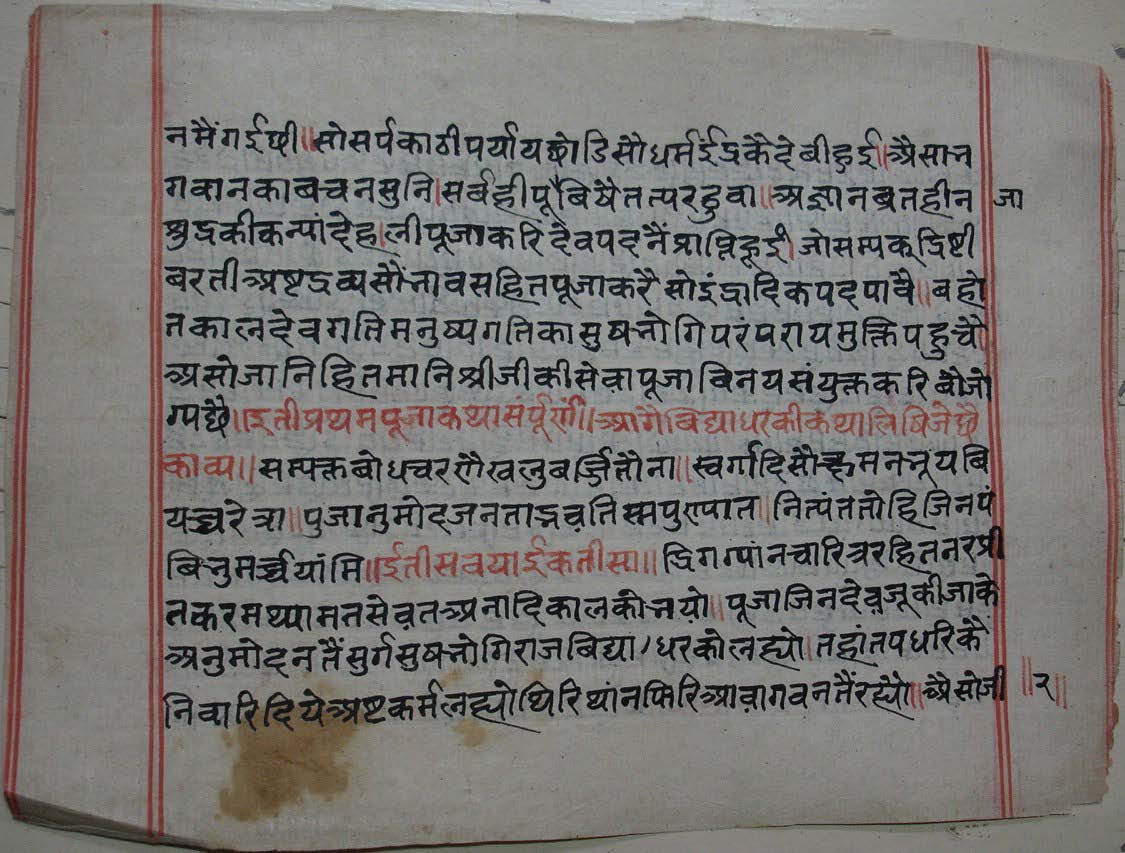 नमैंगईषी॥सोसर्पकाठीपर्यायछोडिसौधर्मईद्रकैदेबीहुई।अैसाभ
गवानकाबचनसुनि।सर्बहीपूबिषैतत्परहुवा॥अज्ञानब्रतहीन जा
श्रुद्रकीकन्यांदेहालीपूजाकरिदेवपदनैंप्राप्तिहूई।जोसम्यकूद्रिष्टी
बरतीअष्टद्रव्यसौंभावसहितपूजाकरैसोइंद्रादिकपदपावै॥बहो
तकालदेवगतिमनुष्यगतिकासुषभोगिपरंपरायमुक्तिपहुचै
अैसोजानिहितमानिश्रीजीकीसेवापूजाबिनयसंयुक्तकरिबौजो
ग्यछै॥इतीप्रथमपूजाकथासंर्पूर्णं॥आगैबिद्याधरकीकथालिषिजेछै
काव्य॥सम्यक्तबोधचरणैखलुबर्ज्जितौना॥स्वर्गादिसौ
यच्चरेत्रा॥पुजानुमोदजनताद्भवतिस्मपुण्यात॥नित्यंततोहिजिनपं
बिभुमर्च्चयांमि॥ईतीसवयाईकतीसा॥द्रिगग्यांनचारित्ररहितनरप्री
तकरमथ्यामतसेवतअनादिकालकोभयो॥पूजाजिनदेवजूकीजाके
अनुमोदनतैंसुर्गसुषभोगिराजबिद्या/धरकोलह्यो।तहांतपधरिकैं
निवारिदियेअष्टकर्मलह्योथिरिथांनफिरिआवागवनतैंरह्यौ॥अैसोजी ॥२॥